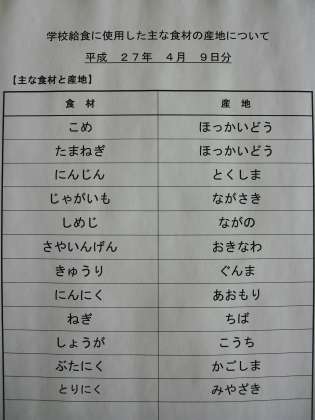 学校給食に使用した主な食材の産地について
平成 27年 4月 9日分
【主な食材と産地】
食 材 産 地
こめ ほっかいどう
たまねぎ ほっかいどう
にんじん とくしま
じゃがいも ながさき
しめじ ながの
さやいんげん おきなわ
きゅうり ぐんま
にんにく あおもり
ねぎ ちば
しょうが こうち
ぶたにく かごしま
とりにく みやざき